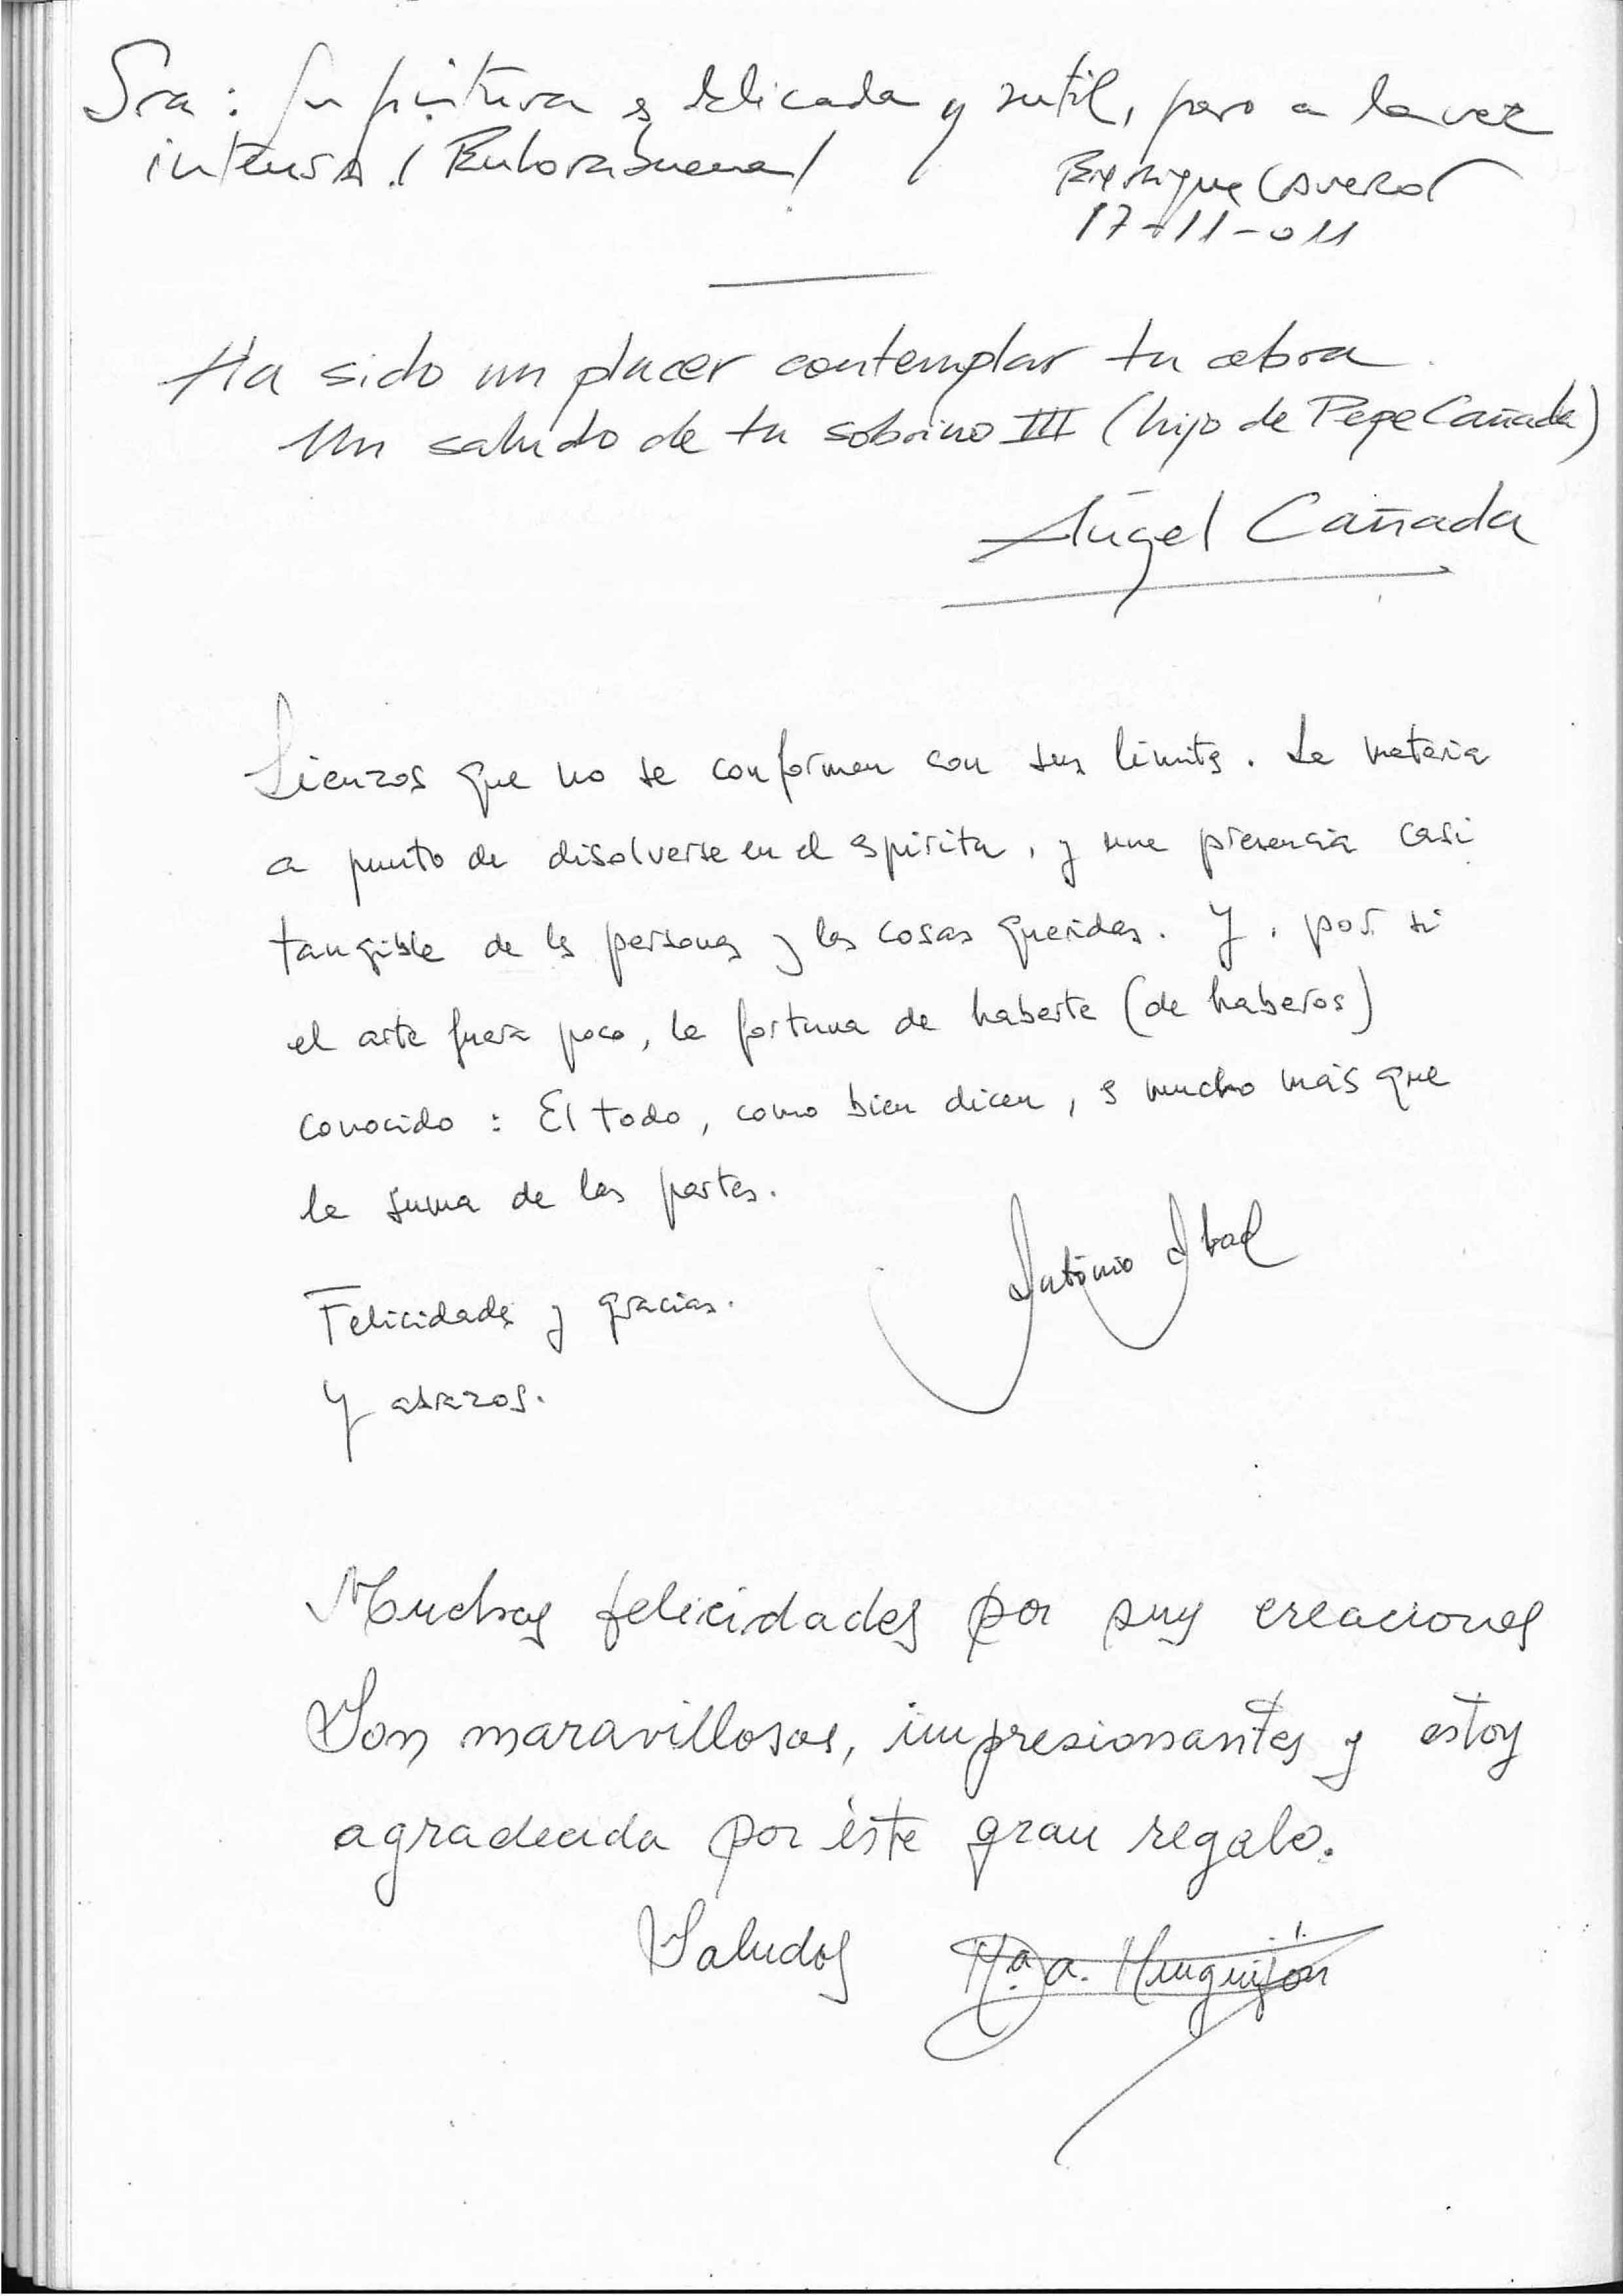 Sra: Su pintura es delicada y sutil, pero a la vez
intensa. ¡Enhorabuena!
Enrique
17-11-011
Ha sido un placer contemplar tu obra.
Un saludo de tu sobrino III (hijo de Pepe Cañada)
Ángel Cañada
Lienzos que no se conforman con sus límites. La materia
a punto de disolverse en el espíritu, y una presencia casi
tangible de las personas y las cosas queridas. Y, por si
el arte fuera poco, la fortuna de haberte (de haberos)
conocido: El todo, como bien dicen, es mucho más que
la suma de las partes.
Antonio
Felicidades y gracias.
Y abrazos.
Muchas felicidades por sus creaciones
Son maravillosas, impresionantes y estoy
agradecida por éste gran regalo.
Saludos Mª a.